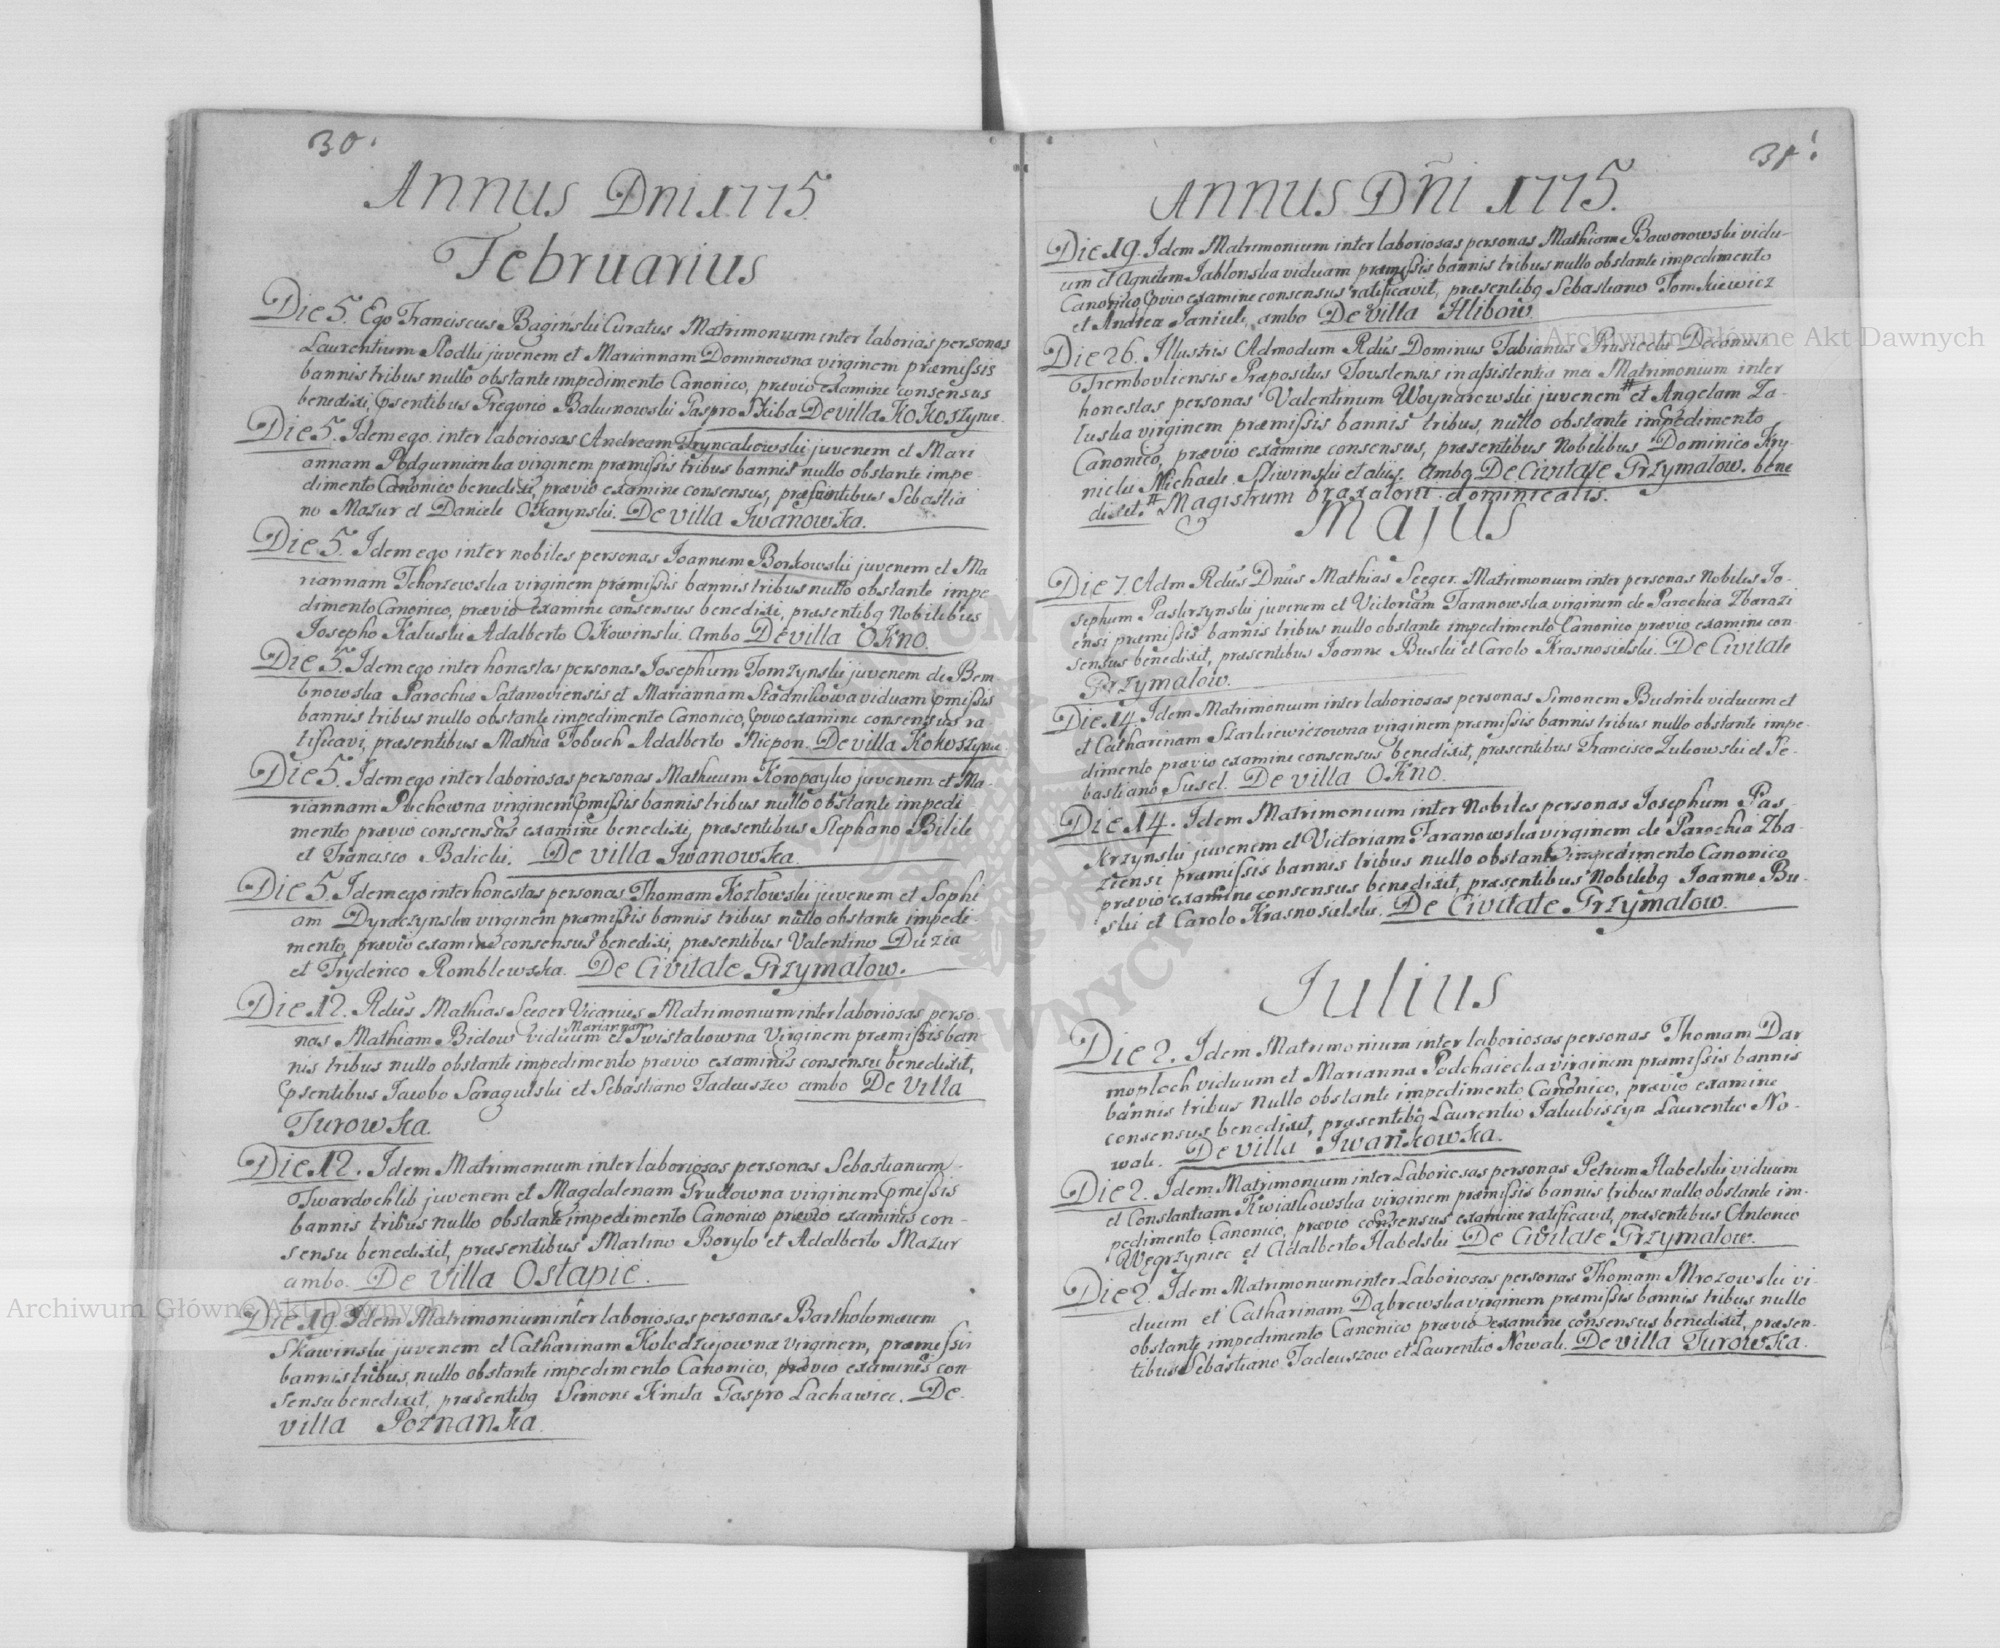 30.
Annus Dni 1775.
Februarius
Die 5. Ego Franciscus Baginskii Curatus Matrimonium inter laborias personas
Laurentium Slodki juvenem et Mariannam Dominowna virginem præmissis
bannis tribus nullo obstante impedimento Canonico, prævio examine consensus
benedixi, psentibus Gregorio Balunowski Gaspro Skiba De villa Kokoszynce.
Die 5. Idem ego inter laboriosas Andream Tryncakowski juvenem et Mari
annam Podgurnianka virginem præmissis tribus bannis nullo obstante impe
dimento Canonico benedixi, prævio examine consensus, præsentibus Sebastia
no Mazur et Daniele Okarynski. De villa Iwanowka.
Die 5. Idem ego inter nobiles personas Joannem Borkowski juvenem et Ma
riannam Tchorzewska virginem præmissis bannis tribus nullo obstante impe
dimento Canonico, prævio examine consensus benedixi, præsentibq Nobilibus
Josepho Kaluski Adalberto Okowinski. ambo De villa Okno.
Die 5. Idem ego inter honestas personas Josephum Tomzynski juvenem de Bem
bnowska Parochiæ Satanoviensis et Mariannam Stadnikowa viduam pmissis
bannis tribus nullo obstante impedimento Canonico, pvio examine consensus ra
tificavi, præsentibus Mathia Tobuch Adalberto Niepon. De villa Kokoszynce
Die 5. Idem ego inter laboriosas personas Mathæum Koropayło juvenem et Ma-
riannam Puchowna virginem pmissis bannis tribus nullo obstante impedi
mento prævio consensus examine benedixi, præsentibus Stephano Bilik
et Francisco Balicki. De villa Iwanowka.
Die 5. Idem ego inter honestas personas Thomam Kozłowski juvenem et Sophi
am Dyraczynska virginem præmissis bannis tribus nullo obstante impedi
mento, prævio examine consensus benedixi, præsentibus Valentino Duzia
et Fryderico Romblewska. De Civitate Grzymałow.
Die 12. Rdus Mathias Seeger Vicarius Matrimonium inter laboriosas perso
nas Mathiam Bidow viduum et Mariannam Twistakowna Virginem præmissis ban-
nis tribus nullo obstante impedimento prævio examinis consensu benedixit,
psentibus Jacobo Saragulski et Sebastiano Tadeuszeo ambo De Villa
Turowka.
Die 12. Idem Matrimonium inter laboriosas personas Sebastianum
Twardochlib juvenem et Magdalenam Prudowna virginem pmissis
bannis tribus nullo obstante impedimento Canonico prævio examinis con-
sensu benedixit, præsentibus Martino Boryło et Adalberto Mazur
ambo. De villa Ostapie.
Die 19 Idem Matrimonium inter laboriosas personas Bartholomæum
Skawinski juvenem et Catharinam Kolodziejowna virginem, præmissis
bannis tribus, nullo obstante impedimento Canonico, prævio examinis con
sensu benedixit, præsentibq Simone Kmita Gaspro Lachawiec. De
villa Poznanka.
31.
Annus Dñi 1775.
Die 19. Idem Matrimonium inter laboriosas personas Mathiam Baworowski vidu-
um et Agnetem Jablonska viduam præmissis bannis tribus nullo obstante impedimento
Canonico pvio examine consensus ratificavit, præsentibq Sebastiano Tomkiewicz
et Andrea Janiuk, ambo De villa Hlibow.
Die 26. Illustris Admodum Rdus Dominus Fabianus Prusiecki Decanus
Trembovliensis Præpositus Toustensis in assistentia mea Matrimonium inter
honestas personas Valentinum Woynarowski juvenem # et Angelam Za-
luska virginem præmissis bannis tribus, nullo obstante impedimento
Canonico, prævio examine consensus, præsentibus Nobilibus Dominico Kry-
nicki Michaele Sliwinski et aliis. ambq De Civitate Grzymalow. bene
dixit. # Magistrum braxatorii dominicalis.
Majus
Die 7. Adm Rdus Dnus Mathias Seeger. Matrimonium inter personas Nobiles Jo-
sephum Paskrzynski juvenem et Victoriam Taranowska virginem de Parochia Zbarazi
ensi præmissis bannis tribus nullo obstante impedimento Canonico prævio examine con-
sensus benedixit, præsentibus Joanne Buski et Carolo Krasnosielski. De Civitate
Grzymalow.
Die 14. Idem Matrimonium inter laboriosas personas Simonem Budnik viduum et
et Catharinam Szarkiewiczowna virginem præmissis bannis tribus nullo obstante impe-
dimento prævio examine consensus benedixit, præsentibus Francisco Zulkowski et Se-
bastiano Susel. De villa Okno.
Die 14. Idem Matrimonium inter Nobiles personas Josephum Pas
krzynski juvenem et Victoriam Taranowska virginem de Parochia Zba-
ziensi præmissis bannis tribus nullo obstante impedimento Canonico
prævio examine consensus benedixit, præsentibus Nobilibq Joanne Bu-
ski et Carolo Krasnosielski. De Civitate Grzymalow.
Julius
Die 2. Idem Matrimonium inter laboriosas personas Thomam Dar
moploch viduum et Marianna Podchaiecka virginem præmissis bannis
bannis tribus nullo obstante impedimento Canonico, prævio examine
consensus benedixit, præsentibq Laurentio Jakubiszyn Laurentio No-
wak. De villa Iwankowka.
Die 2. Idem Matrimonium inter Laboriosas personas Petrum Habelski viduum
et Constantiam Kwiatkowska virginem præmissis bannis tribus nullo obstante im-
pedimento Canonico, prævio consensus examine ratificavit, præsentibus Antonio
Węgrzyniec et Adalberto Habelski De Civitate Grzymalow.
Die 2. Idem Matrimonium inter Laboriosas personas Thomam Mrozowski vi-
duum et Catharinam Dąbrowska virginem præmissis bannis tribus nullo
obstante impedimento Canonico prævio examine consensus benedixit, præsen-
tibus Sebastiano Tadeuszow et Laurentio Nowak. De villa Turowka.
Archiwum Główne Akt Dawnych
Archiwum Główne Akt Dawnych